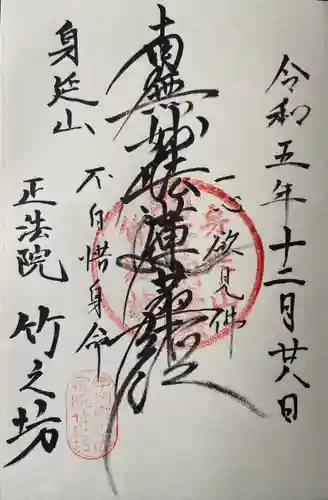 令和五年十二月廿八日
一心欲見佛
南無妙法蓮華経
不自惜身命
身延山
正法院 竹之坊